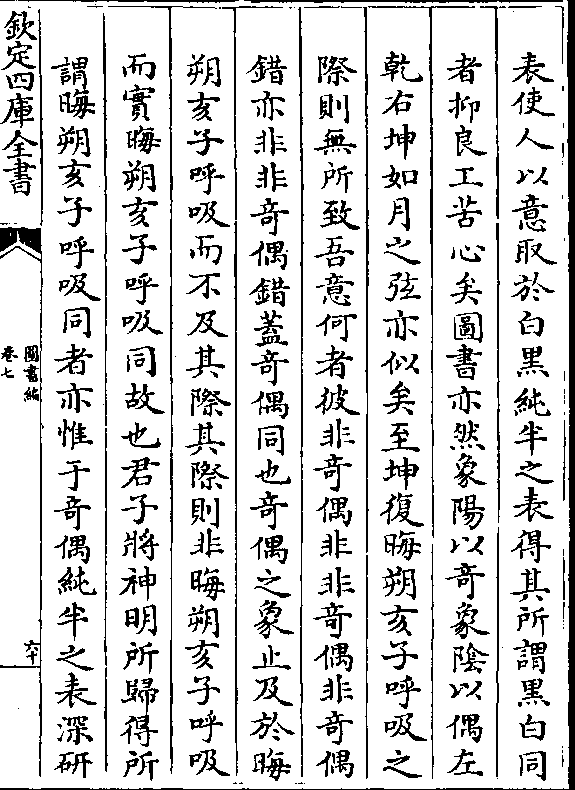 表使人以意取於白黒純半之表得其所謂黒白同
者抑良工苦心矣圖書亦然象陽以奇象陰以偶左
乾右坤如月之弦亦似矣至坤復晦朔亥子呼吸之
際則無所致吾意何者彼非奇偶非非奇偶非奇偶
錯亦非非奇偶錯蓋奇偶同也奇偶之象止及於晦
朔亥子呼吸而不及其際其際則非晦朔亥子呼吸
而實晦朔亥子呼吸同故也君子將神明所歸得所
謂晦朔亥子呼吸同者亦惟于奇偶純半之表深研
欽定四庫全書
圖書編
卷七
六十